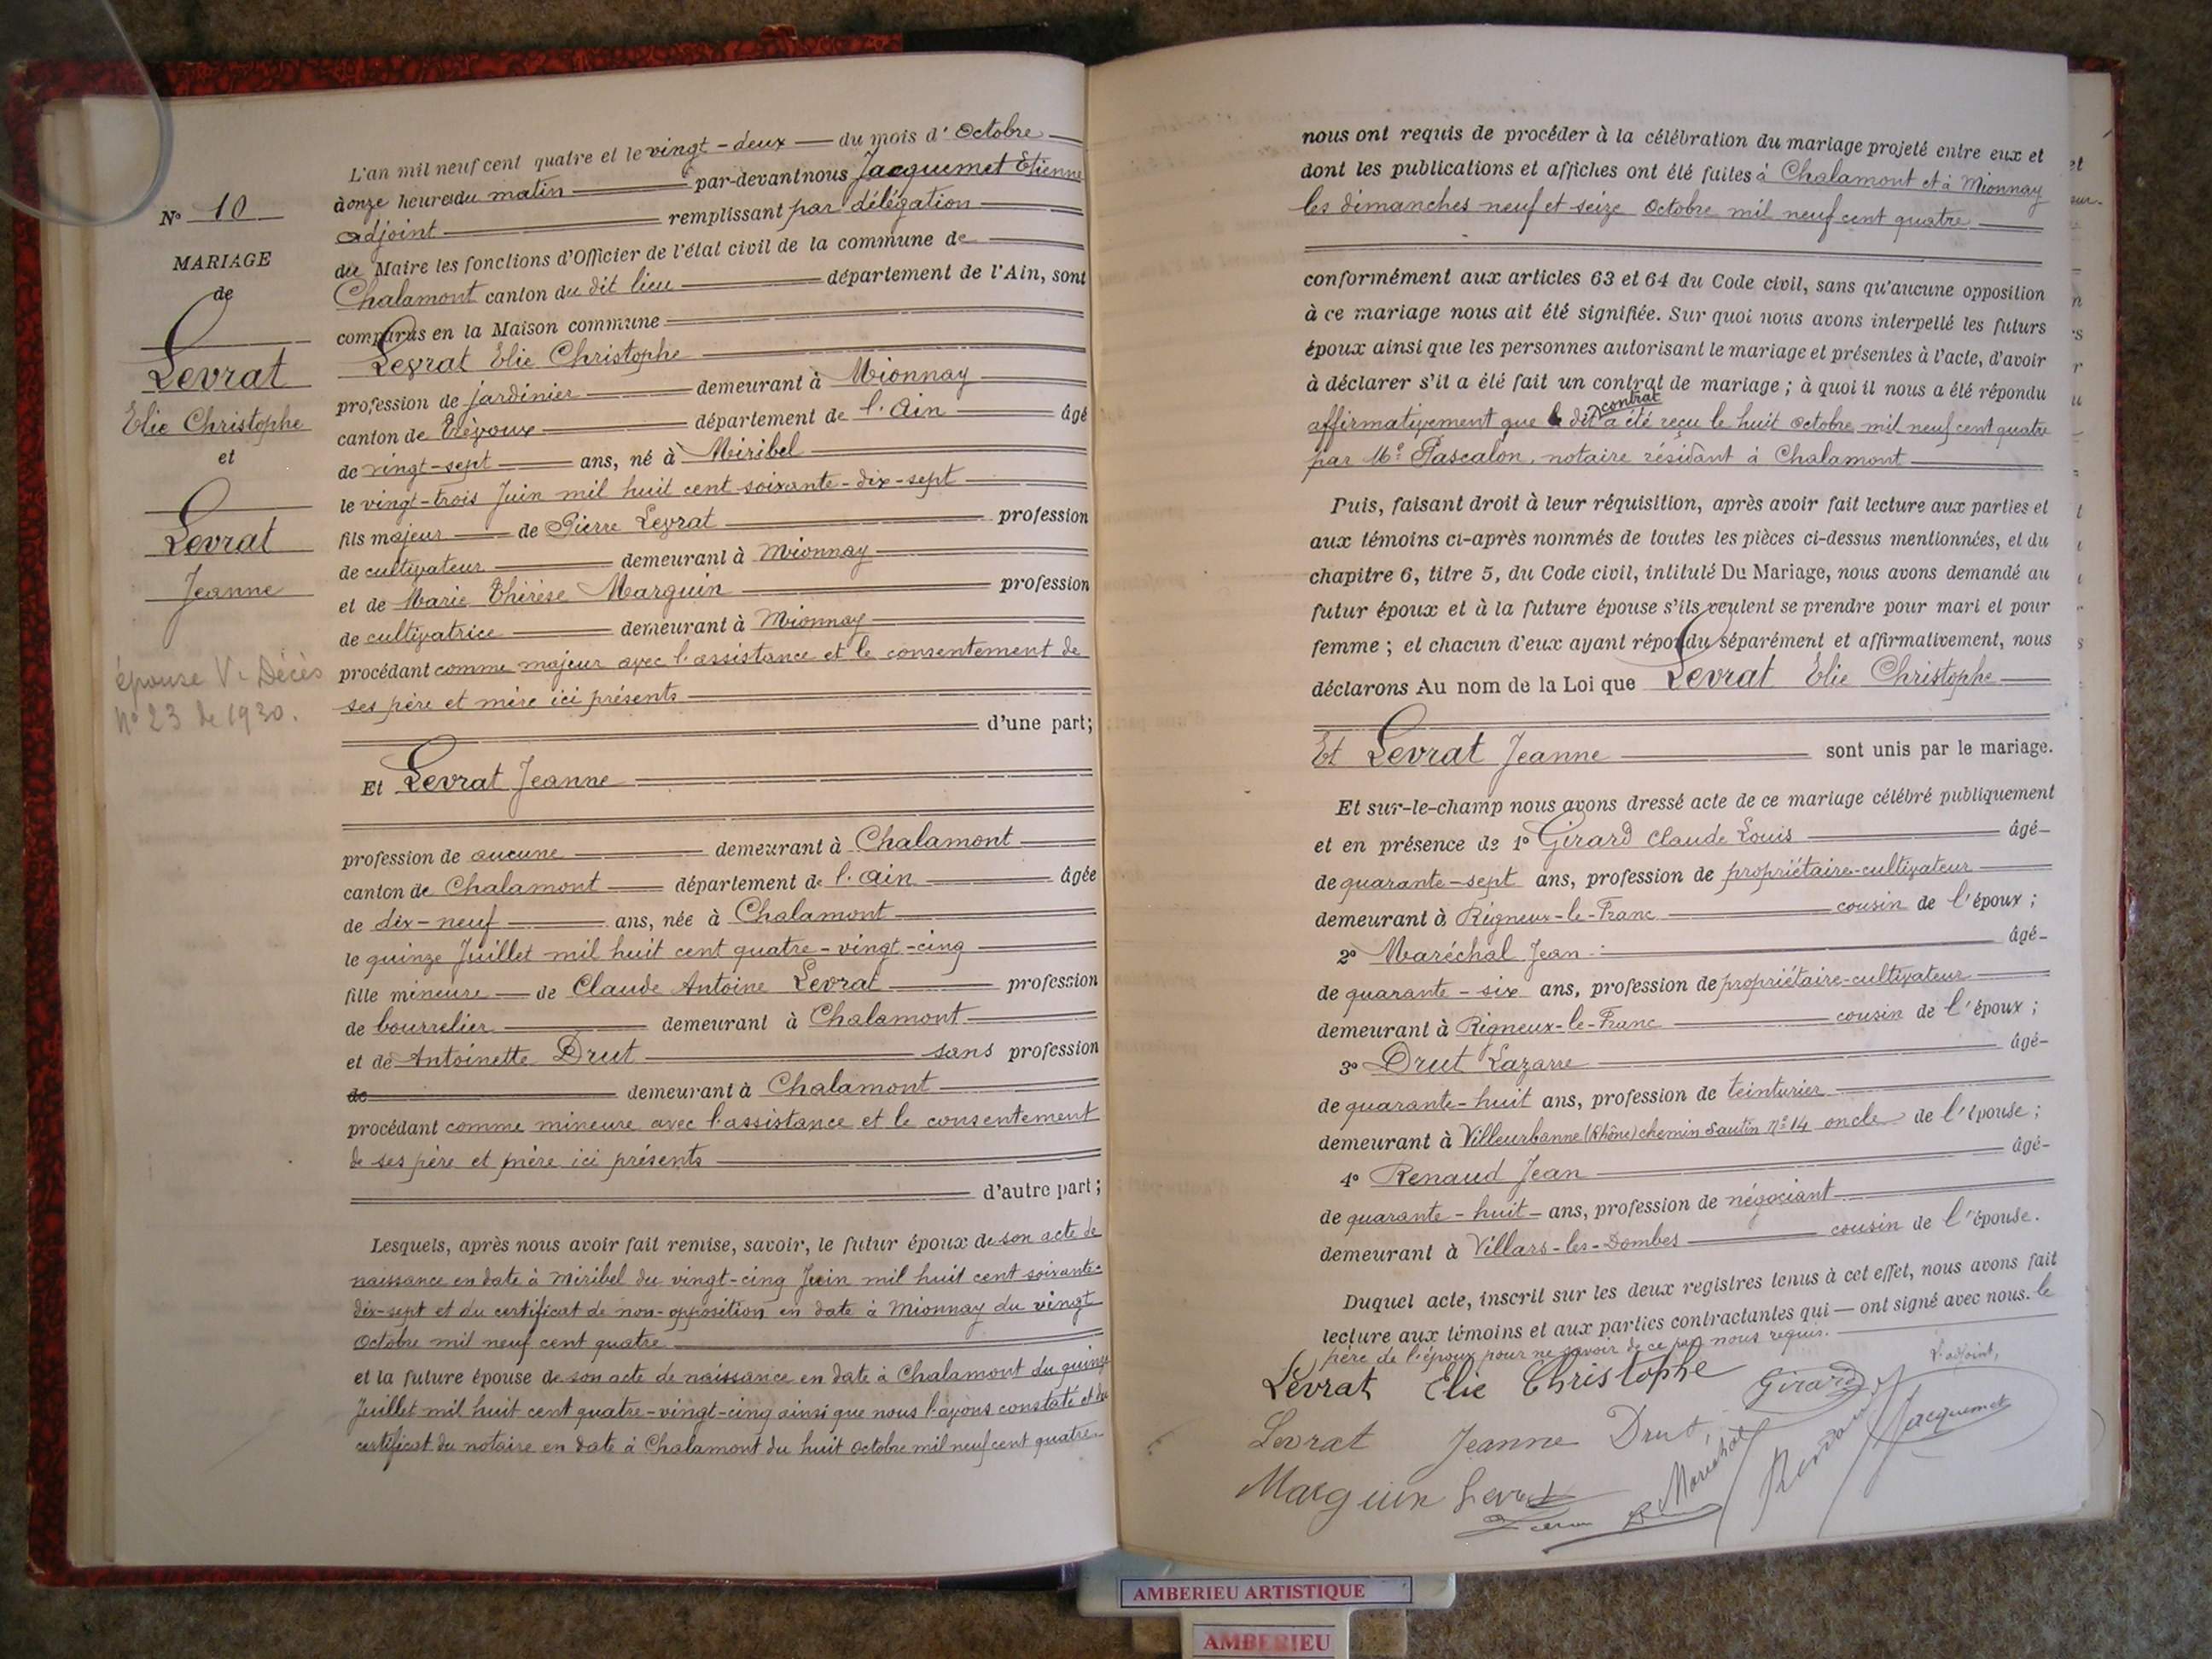 N° 10
MARIAGE
de
Levrat
Elie Christophe
et
Levrat
Jeanne
épouse V. Décès
N° 23 de 1930.
L'an mil neuf cent quatre et le vingt-deux du mois d'Octobre
à onze heures du matin par-devant nous Jacquemet Etienne
adjoint remplissant par délégation
du Maire les fonctions d'Officier de l'état civil de la commune de
Chalamont canton du dit lieu département de l'Ain, sont
comparus en la Maison commune
Levrat Elie Christophe
profession de jardinier demeurant à Mionnay
canton de Trévoux département de l'Ain âgé
de vingt-sept ans, né à Miribel
le vingt-trois Juin mil huit cent soixante-dix-sept
fils majeur de Pierre Levrat profession
de cultivateur demeurant à Mionnay
et de Marie Thérèse Marguin profession
de cultivatrice demeurant à Mionnay
procédant comme majeur avec l'assistance et le consentement de
ses père et mère ici présents
d'une part;
Et Levrat Jeanne
profession de aucune demeurant à Chalamont
canton de Chalamont département de l'Ain âgée
de dix-neuf ans, née à Chalamont
le quinze Juillet mil huit cent quatre-vingt-cinq
fille mineure de Claude Antoine Levrat profession
de bourrelier demeurant à Chalamont
et de Antoinette Drut sans profession
de demeurant à Chalamont
procédant comme mineure avec l'assistance et le consentement
de ses père et mère ici présents
d'autre part;
Lesquels, après nous avoir fait remise, savoir, le futur époux de son acte de
naissance en date à Miribel du vingt-cinq Juin mil huit cent soixante-
dix-sept et du certificat de non-opposition en date à Mionnay du vingt
Octobre mil neuf cent quatre
et la future épouse de son acte de naissance en date à Chalamont du quinze
Juillet mil huit cent quatre-vingt-cinq ainsi que nous l'avons constaté et du
certificat du notaire en date à Chalamont du huit Octobre mil neuf cent quatre
nous ont requis de procéder à la célébration du mariage projeté entre eux et
dont les publications et affiches ont été faites à Chalamont et à Mionnay
les dimanches neuf et seize Octobre mil neuf cent quatre
conformément aux articles 63 et 64 du Code civil, sans qu'aucune opposition
à ce mariage nous ait été signifiée. Sur quoi nous avons interpellé les futurs
époux ainsi que les personnes autorisant le mariage et présentes à l'acte, d'avoir
à déclarer s'il a été fait un contrat de mariage; à quoi il nous a été répondu
affirmativement que le dit contrat a été reçu le huit Octobre mil neuf cent quatre
par Me Pascalon, notaire résidant à Chalamont
Puis, faisant droit à leur réquisition, après avoir fait lecture aux parties et
aux témoins ci-après nommés de toutes les pièces ci-dessus mentionnées, et du
chapitre 6, titre 5, du Code civil, intitulé Du Mariage, nous avons demandé au
futur époux et à la future épouse s'ils veulent se prendre pour mari et pour
femme; et chacun d'eux ayant répondu séparément et affirmativement, nous
déclarons Au nom de la Loi que Levrat Elie Christophe
Et Levrat Jeanne sont unis par le mariage.
Et sur-le-champ nous avons dressé acte de ce mariage célébré publiquement
et en présence de 1° Girard Claude Louis âgé
de quarante-sept ans, profession de propriétaire-cultivateur
demeurant à Rigneux-le-Franc cousin de l'époux;
2° Maréchal Jean âgé
de quarante-six ans, profession de propriétaire-cultivateur
demeurant à Rigneux-le-Franc cousin de l'époux;
3° Drut Lazarre âgé
de quarante-huit ans, profession de teinturier
demeurant à Villeurbanne (Rhône) chemin Sautin N° 14 oncle de l'épouse;
4° Renaud Jean âgé
de quarante-huit ans, profession de négociant
demeurant à Villars-les-Dombes cousin de l'épouse.
Duquel acte, inscrit sur les deux registres tenus à cet effet, nous avons fait
lecture aux témoins et aux parties contractantes qui ont signé avec nous. le
père de l'époux pour ne savoir de ce par nous requis.
L'adjoint,
Levrat Elie Christophe Girard
Levrat Jeanne Drut Maréchal Renaud Jacquemet
Marguin Levrat
AMBERIEU ARTISTIQUE
AMBERIEU